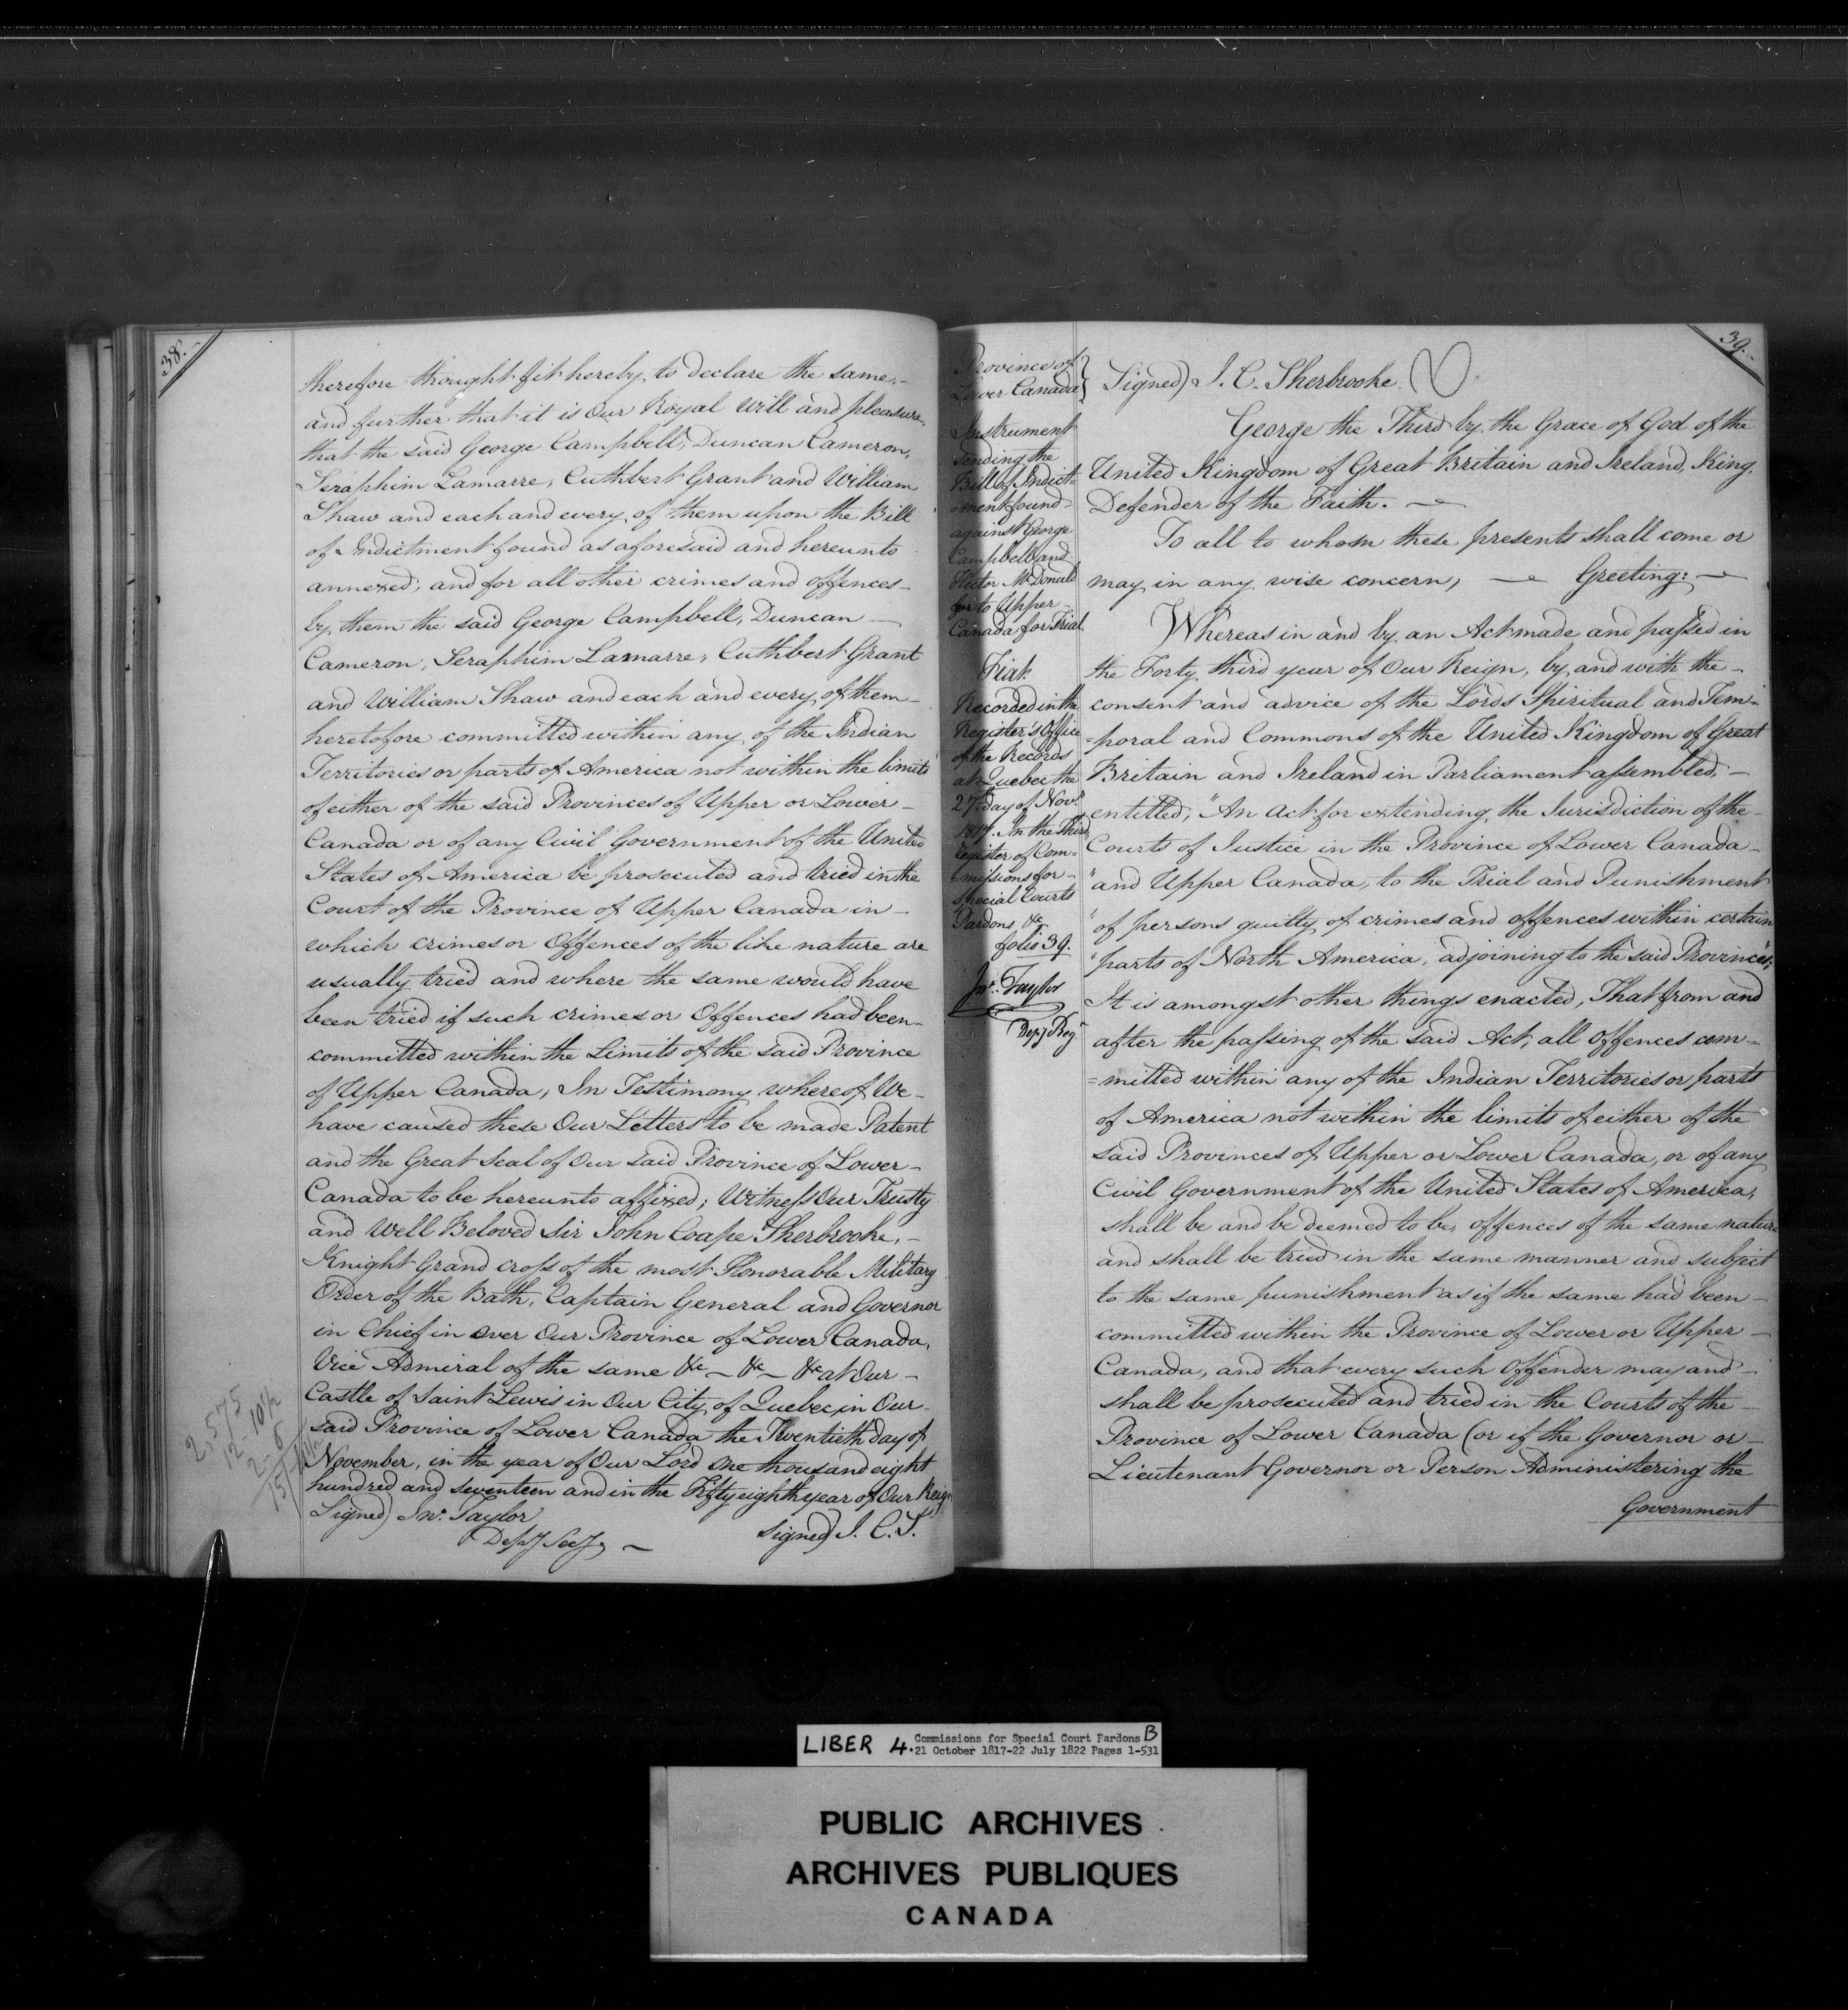 38.
therefore thought fit hereby to declare the same,-
and further that it is Our Royal Will and pleasure,
that the said George Campbell, Duncan Cameron,
Seraphim Lamarre, Cuthbert Grant and William
Shaw and each and every of them upon the Bill
of Indictment found as aforesaid and hereunto
annexed; and for all other crimes and offences-
by them the said George Campbell, Duncan —
Cameron, Seraphim Lamarre, Cuthbert Grant
and William Shaw and each and every of them-
heretofore committed within any of the Indian
Territories or parts of America not within the limits
of either of the said Provinces of Upper or Lower-
Canada or of any Civil Government of the United
States of America be prosecuted and tried in the
Court of the Province of Upper Canada in-
which crimes or Offences of the like nature are
usually tried and where the same would have
been tried if such crimes or Offences had been-
committed within the Limits of the said Province
of Upper Canada; In Testimony whereof We-
have caused these Our Letters to be made Patent
and the Great Seal of Our said Province of Lower-
Canada to be hereunto affixed; Witness Our Trusty
and Well Beloved Sir John Coape Sherbrooke,-
Knight Grand cross of the most Honorable Military
Order of the Bath, Captain General and Governor
in Chief in over Our Province of Lower Canada,
Vice Admiral of the same &c - &c - &c at Our-
Castle of Saint Lewis in Our City of Quebec in Our-
said Province of Lower Canada the Twentieth day of
November, in the year of Our Lord One thousand eight
hundred and seventeen and in the Fifty eighth year of Our Reign
Signed) Jnr. Taylor
Depy Secy -
signed) J. C. S.
2,575
12-10½
2-6
39.
Province of
Lower Canada
Instrument
sending the
Bill of Indict-
-ment found
against George
Campbell and
Hector McDonald
for to Upper
Canada for Trial
Fiat
Recorded in the
Register's Office
of the Records
at Quebec the
27th day of Novr.
1817. In the Third
register of Com-
-missions for-
Special Courts
Pardons, &c
folio 39.
Jnr. Taylor
Depy Reg.
Signed) J. C. Sherbrooke.
George the Third by the Grace of God of the
United Kingdom of Great Britain and Ireland, King,
Defender of the Faith. —
To all to whom these presents shall come or
may in any wise concern, — Greeting: —
Whereas in and by an Act made and passed in
the Forty third year of Our Reign, by and with the-
consent and advice of the Lords Spiritual and Tem-
-poral and Commons of the United Kingdom of Great
Britain and Ireland in Parliament assembled,-
entitled, "An Act for extending the Jurisdiction of the-
Courts of Justice in the Province of Lower Canada-
"and Upper Canada, to the Trial and Punishment
"of persons guilty of crimes and offences within certain
"parts of North America, adjoining to the said Provinces";
It is amongst other things enacted, That from and
after the passing of the said Act, all offences com-
=mitted within any of the Indian Territories or parts
of America not within the limits of either of the
said Provinces of Upper or Lower Canada, or of any
Civil Government of the United States of America,
shall be and be deemed to be, offences of the same nature
and shall be tried in the same manner and subject
to the same punishment as if the same had been-
committed within the Province of Lower or Upper-
Canada, and that every such Offender may and-
shall be prosecuted and tried in the Courts of the-
Province of Lower Canada (or if the Governor or-
Lieutenant Governor or Person Administering the
Government
LIBER 4. Commissions for Special Court Pardons B
21 October 1817-22 July 1822 Pages 1-531
PUBLIC ARCHIVES
ARCHIVES PUBLIQUES
CANADA